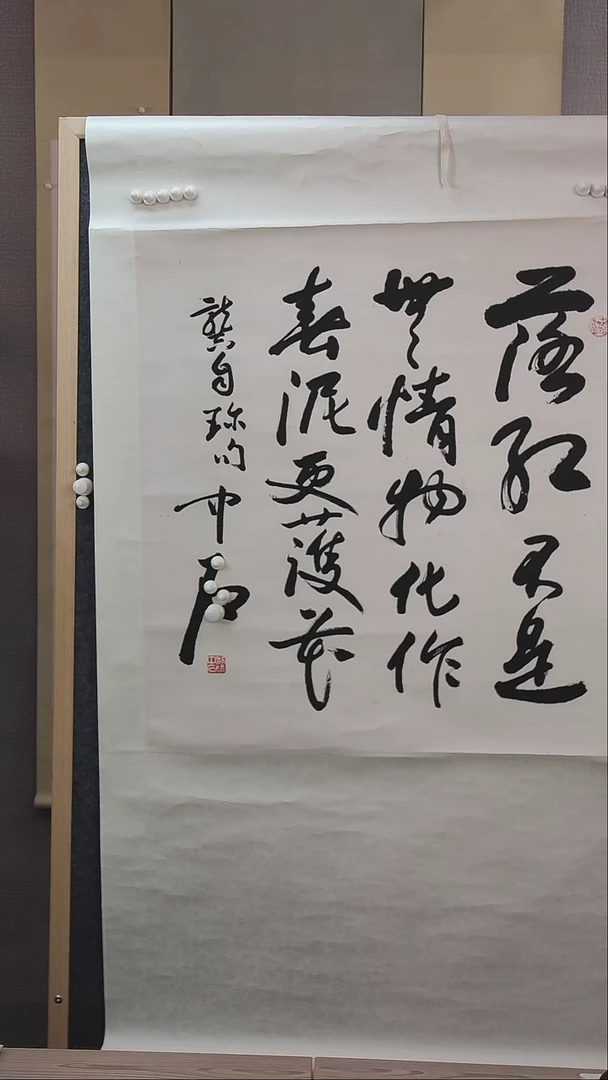 落红不是
無情物化作
春泥更護花
龔自珍句 中石